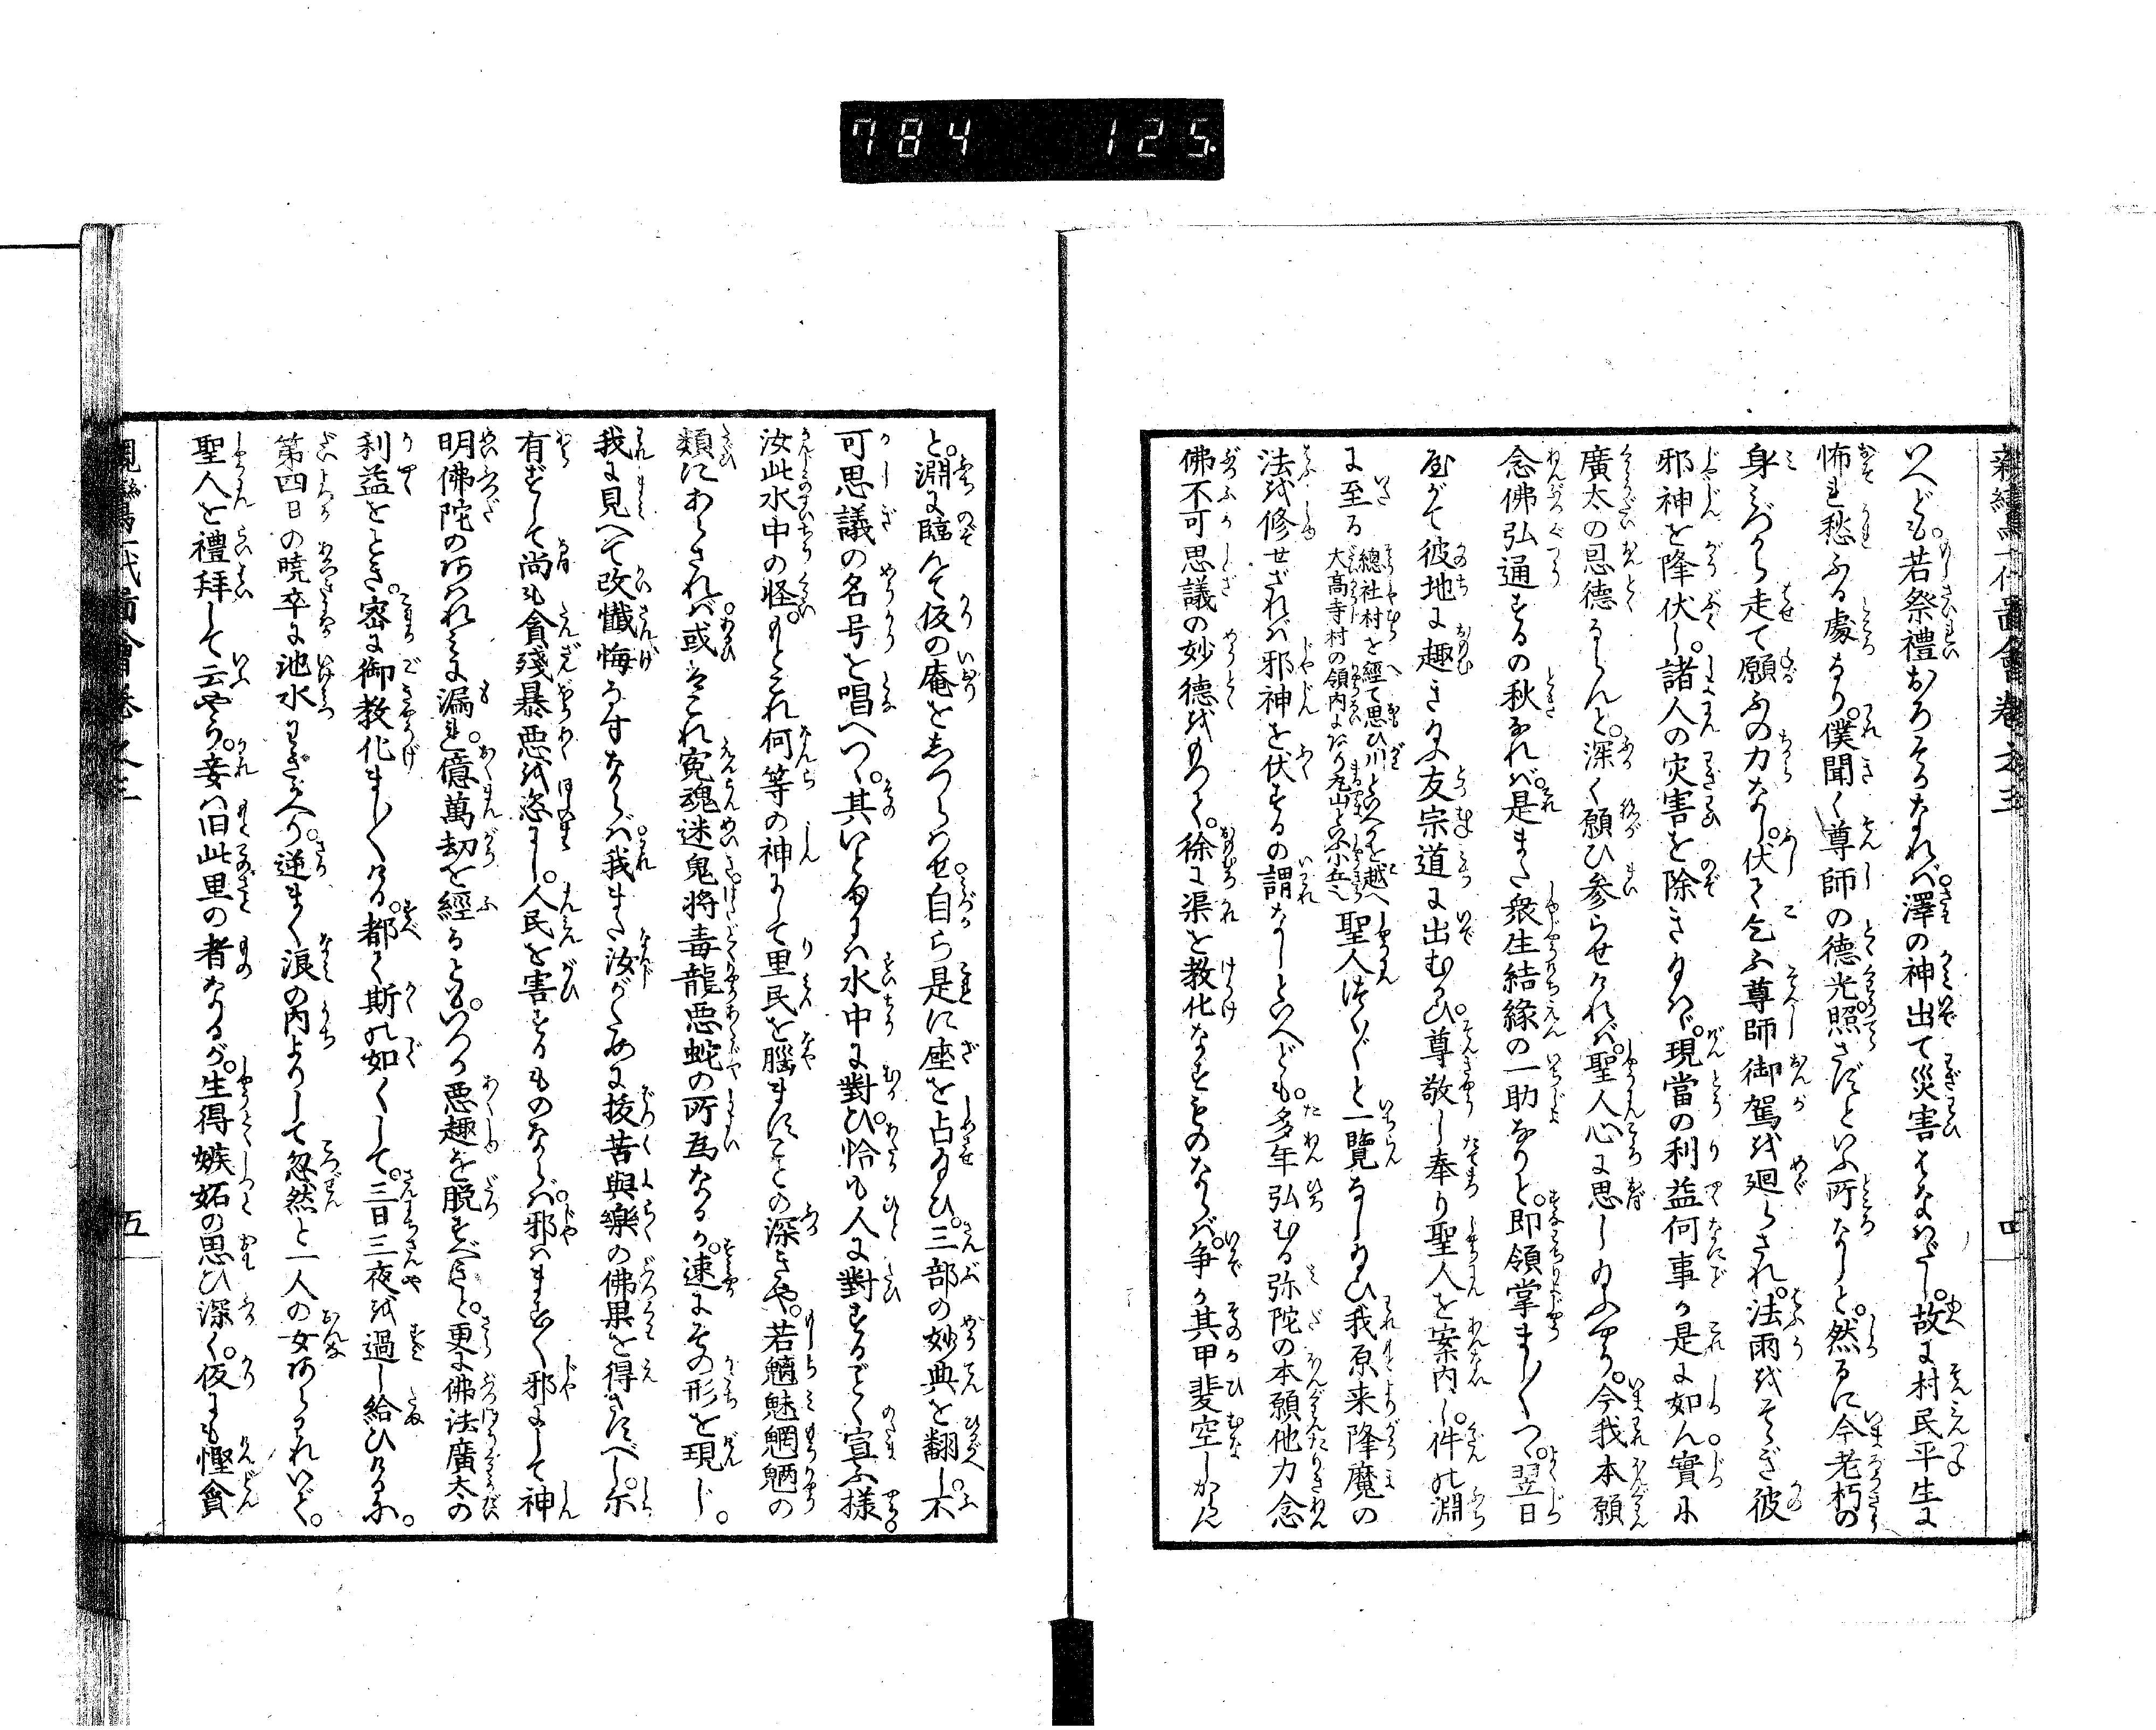 784 125
いへども。若祭禮おろそかなれば。澤の神出て災害をなすべし。故に村民平生に
怖れ愁ふる處なり。僕聞く尊師の徳光。照さずといふ所なしと。然るに今老朽の
身みづから走て願ふの力なし。伏て乞ふ尊師御駕を廻らされ。法雨をそゝぎ彼
邪神を降伏し。諸人の灾害を除き給はゞ。現當の利益何事か是に如ん。實に
廣太の恩徳ならんと。深く願ひ参らせければ。聖人心に思し給ふやう。今我本願
念佛弘通するの秋なれば。是また衆生結縁の一助なりと。即領掌まし〳〵つ。翌日
やがて彼地に趣き給ふ。友宗道に出むかひ。尊敬し奉り聖人を案内し。件の淵
に至る
總社村を經て思ひ川といへるを越へ
大高寺村の領内にあり丸山と云小丘也
聖人つら〳〵と一覧なし給ひ我原来降魔の
法を修せざれば邪神を伏するの謂なしといへども。多年弘むる弥陀の本願他力念
佛不可思議の妙徳をもつて。徐に渠を教化なすものならば。争か其甲斐空しからん
と。淵に臨んで仮の庵をしつらはせ。自ら是に座を占給ひ。三部の妙典を翻し。不
可思議の名号を唱へつゝ。其いとまには水中に對ひ。恰も人に對するごとく宣ふ様。
汝此水中の怪。もとこれ何等の神にして里民を腦ますことの深きや。若魑魅魍魎の
類にあらされば。或はこれ寃魂迷鬼。将毒龍悪蛇の所爲なるか。速にその形を現じ。
我に見へて改懺悔なすならば。我また汝がために抜苦與樂の佛果を得さすべし。尓
有ずして尚も貪殘暴悪を恣にし。人民を害するものならば。邪はます〳〵邪にして神
明佛陀のあはれみに漏れ。億萬劫を經るとも。いつか悪趣を脱すべきと。更に佛法廣大の
利益をとき。密に御教化まし〳〵ける。都て斯の如くして。三日三夜を過し給ひけるに。
第四日の暁卒に池水わきかへり。逆まく浪の内よりして忽然と一人の女あらはれいで。
聖人を禮拜して云やう。妾は旧此里の者なるが。生得嫉妬の思ひ深く。仮にも慳貪
五